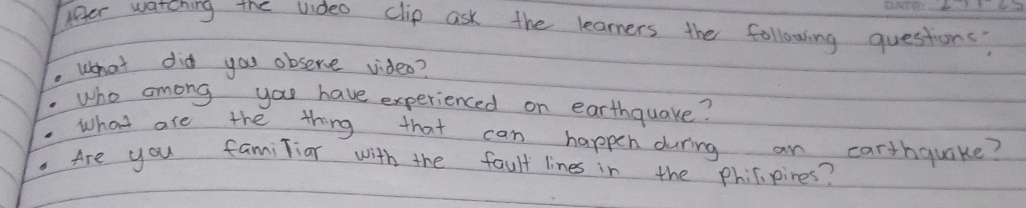 After watching the video clip ask the learners the following questions:
• What did you observe video?
• Who among you have experienced an earthquake?
• What are the thing that can happen during an earthquake?
• Are you familiar with the fault lines in the Philipines?